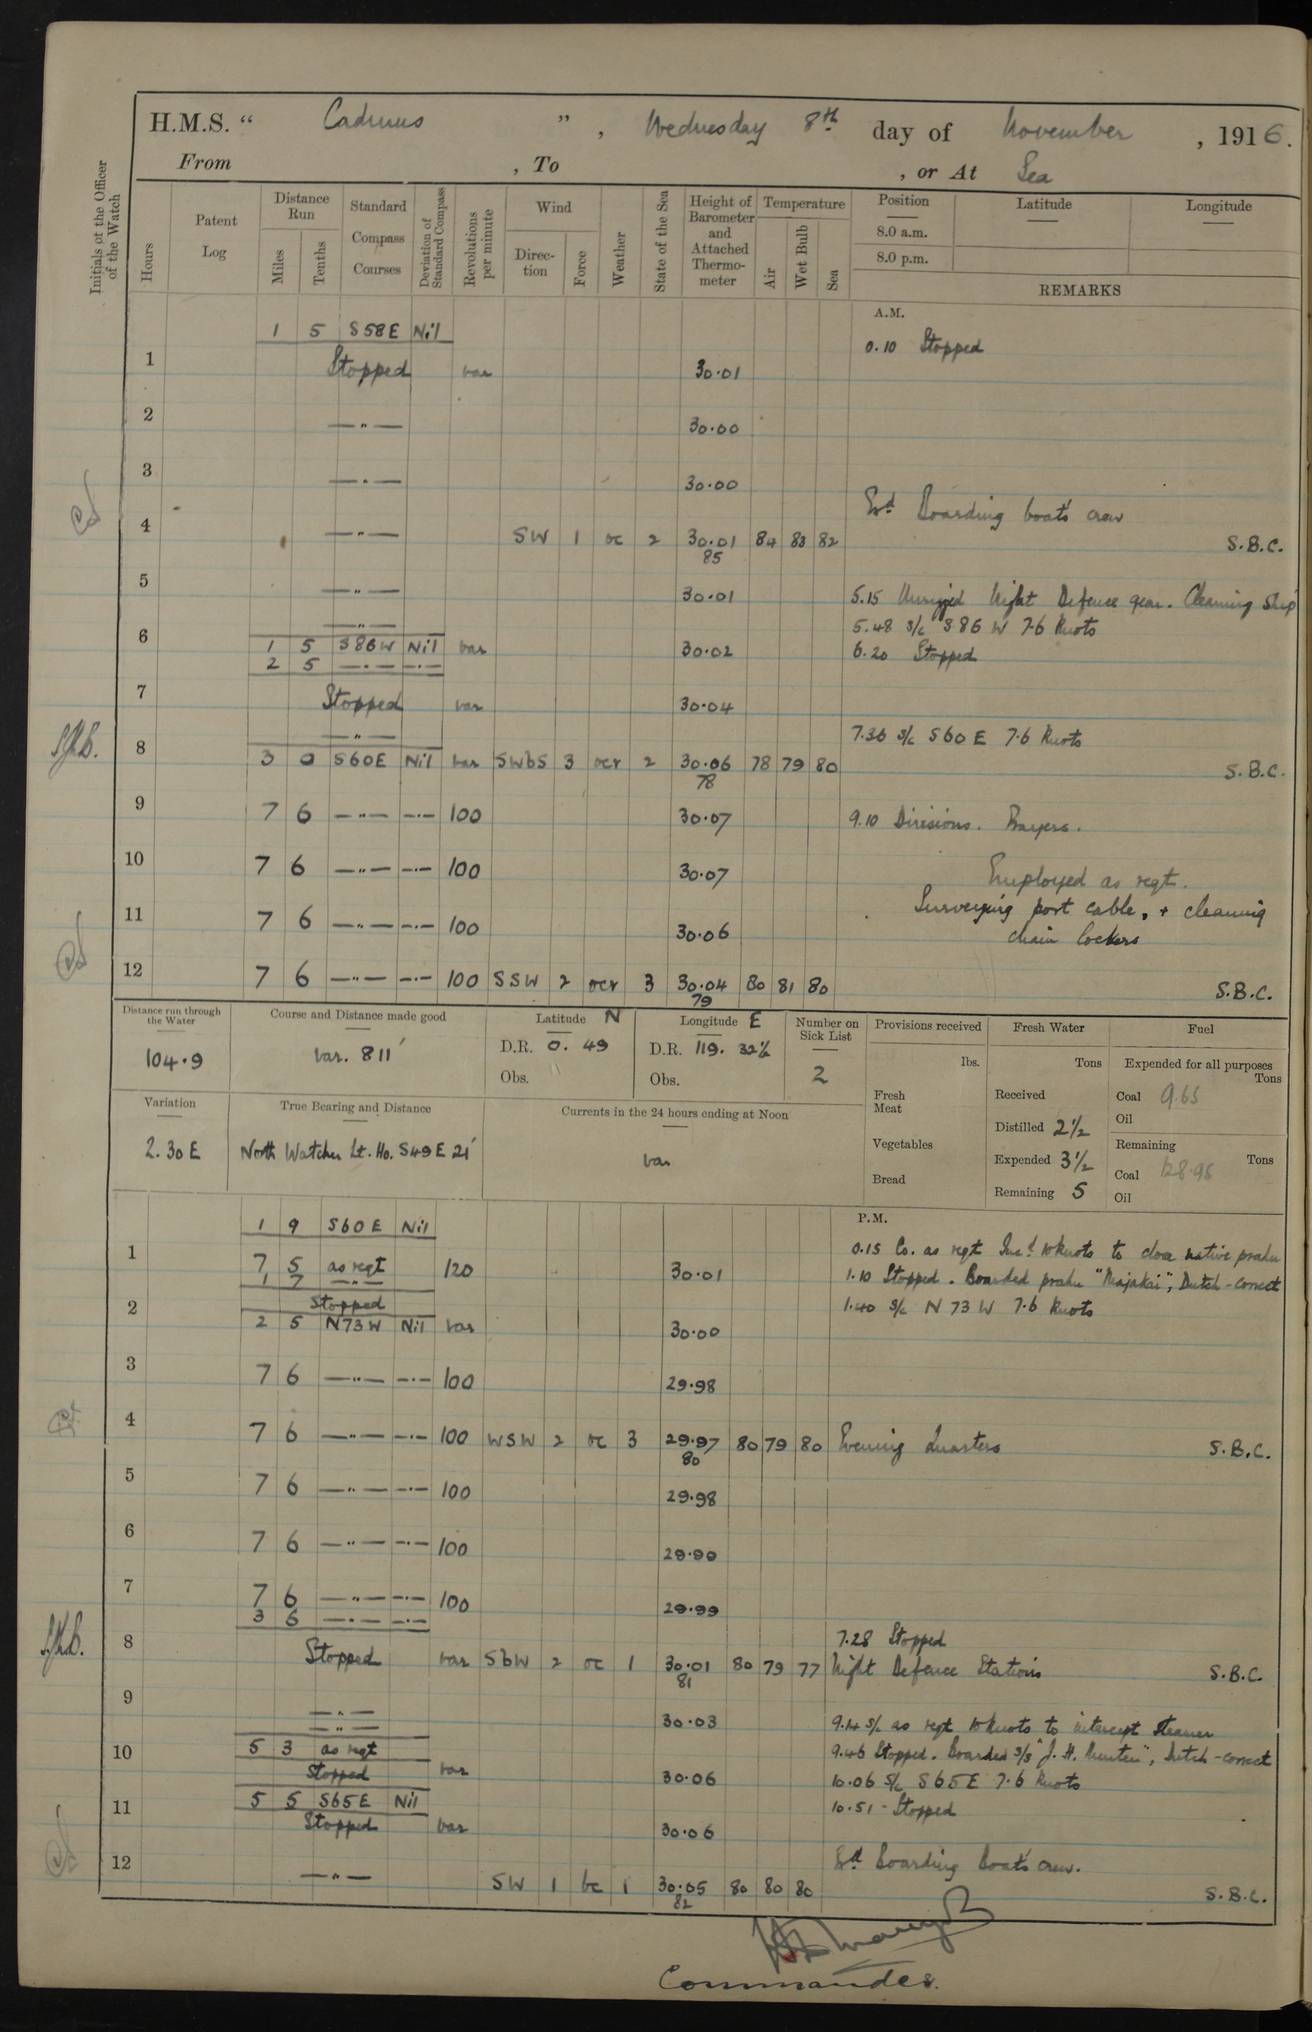 H.M.S. “ Cadmus ” , Wednesday 8th day of November , 1916.
From , To , or At Sea
Initials of the Officer of the Watch
Hours
Patent Log
Distance Run
Miles
Tenths
Standard Compass Courses
Deviation of Standard Compass
Revolutions per minute
Wind
Direction
Force
Weather
State of the Sea
Height of Barometer and Attached Thermometer
Temperature
Air
Wet Bulb
Sea
Position
8.0 a.m.
8.0 p.m.
Latitude
Longitude
REMARKS
A.M.
1 5 S58E Nil
0.10 Stopped
1 Stopped var 30.01
2 —"— 30.00
3 —"— 30.00
Exd Boarding boats crew
4 —"— SW 1 oc 2 30.01 84 83 82 S.B.C.
85
5 —"— 30.01 5.15 Unrigged Night Defence gear. Cleaning Ship
—"— 5.48 S/c S86W 7.6 Knots
6 1 5 S86W Nil var 30.02 6.20 Stopped
2 5 —"— —"—
7 Stopped var 30.04
—"— 7.36 S/c S60E 7.6 Knots
8 3 0 S60E Nil var SWbS 3 ocr 2 30.06 78 79 80 S.B.C.
78
9 7 6 —"— —"— 100 30.07 9.10 Divisions. Prayers.
10 7 6 —"— —"— 100 30.07 Employed as reqt.
Surveying port cable, + cleaning
11 7 6 —"— —"— 100 30.06 chain lockers
12 7 6 —"— —"— 100 SSW 2 ocr 3 30.04 80 81 80 S.B.C.
79
Distance run through the Water
104.9
Course and Distance made good
var. 811'
Latitude N
D.R. 0. 49
Obs.
Longitude E
D.R. 119. 32½
Obs.
Number on Sick List
2
Provisions received
lbs.
Fresh Meat
Vegetables
Bread
Fresh Water
Tons
Received
Distilled 2½
Expended 3½
Remaining 5
Fuel
Expended for all purposes
Tons
Coal 9.65
Oil
Remaining
Tons
Coal 128.95
Oil
Variation
2.30 E
True Bearing and Distance
North Watcher Lt. Ho. S49E 21'
Currents in the 24 hours ending at Noon
var
P.M.
1 9 S60E Nil
0.15 Co. as reqt Inc! 10 knots to close native prahu
1 7 5 as reqt 120 30.01 1.10 Stopped. Boarded prahu "Majakai", Dutch - correct
1 7 —"—
Stopped 1.40 S/c N73W 7.6 Knots
2 2 5 N73W Nil var 30.00
3 7 6 —"— —"— 100 29.98
4 7 6 —"— —"— 100 WSW 2 oc 3 29.97 80 79 80 Evening Quarters S.B.C.
80
5 7 6 —"— —"— 100 29.98
6 7 6 —"— —"— 100 29.90
7 7 6 —"— —"— 100 29.99
3 6 —"— —"—
7.28 Stopped
8 Stopped var SbW 2 oc 1 30.01 80 79 77 Night Defence Stations S.B.C.
81
9 —"— 30.03
—"— 9.14 S/c as reqt 10 knots to intercept Steamer
5 3 as reqt 9.46 Stopped. Boarded S/S "J. H. ", Dutch - correct
10 Stopped var 30.06 10.06 S/c S65E 7.6 Knots
5 5 S65E Nil 10.51 Stopped
11 Stopped var 30.06
Exd Boarding Boats crew.
12 —"— SW 1 bc 1 30.05 80 80 80 S.B.C.
82
Commander.